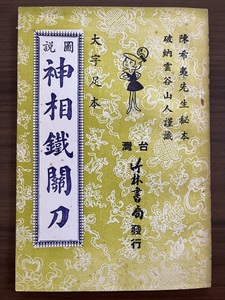 陳希夷先生秘本
破納雲谷山人謹識
大字足本
圖說
神相鐵關刀
台灣
竹林書局發行